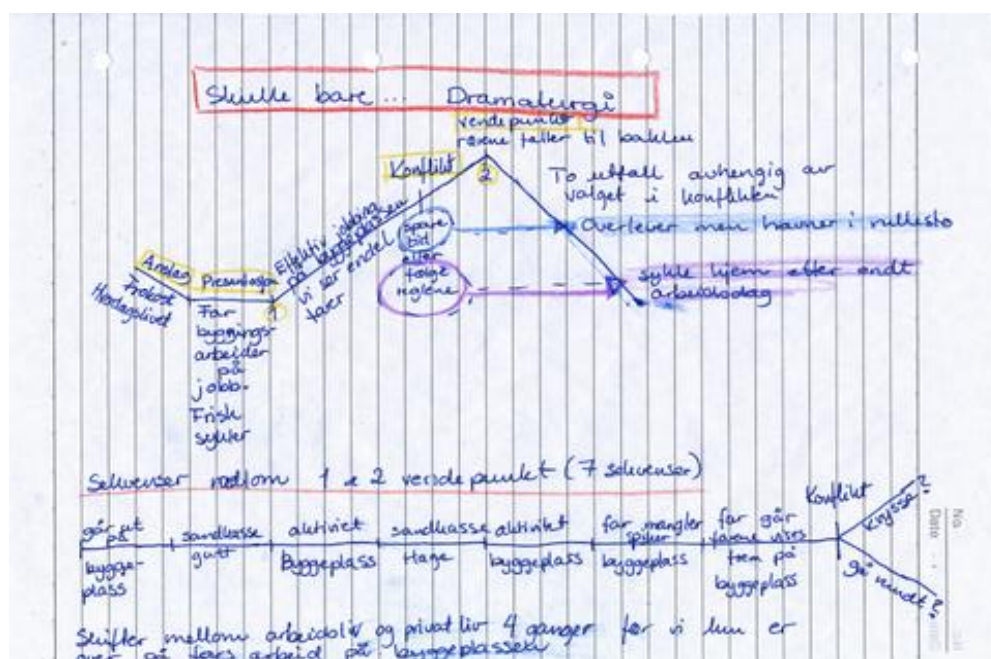 Skulle bare... Dramaturgi
vendepunkt
røret faller til bakken
Konflikt
2
To utfall avhengig av
valget i konflikten
Overlever men havner i rullesto
sykle hjem etter endt
arbeidsdag
Effektiv jobbing
på byggeplassen
vi ser endel
farer
Spare
tid
eller
følge
reglene
Anslag
Presentasjon
Frokost
Hverdagslivet
1
Far
byggnings-
arbeider
på
jobb.
Frisk
sykler
Sekvenser mellom 1 & 2 vendepunkt (7 sekvenser)
går ut
på
bygge-
plass
sandkasse
gutt
aktiviet
Byggeplass
sandkasse
Hage
aktivitet
byggeplass
far mangler
spiker
byggeplass
far går
farene vises
frem på
byggeplass
Konflikt
krysse ?
gå rundt ?
No.
Date
Skifter mellom arbeidsliv og privat liv 4 ganger før vi kun er
over på fars arbeid på byggeplassen